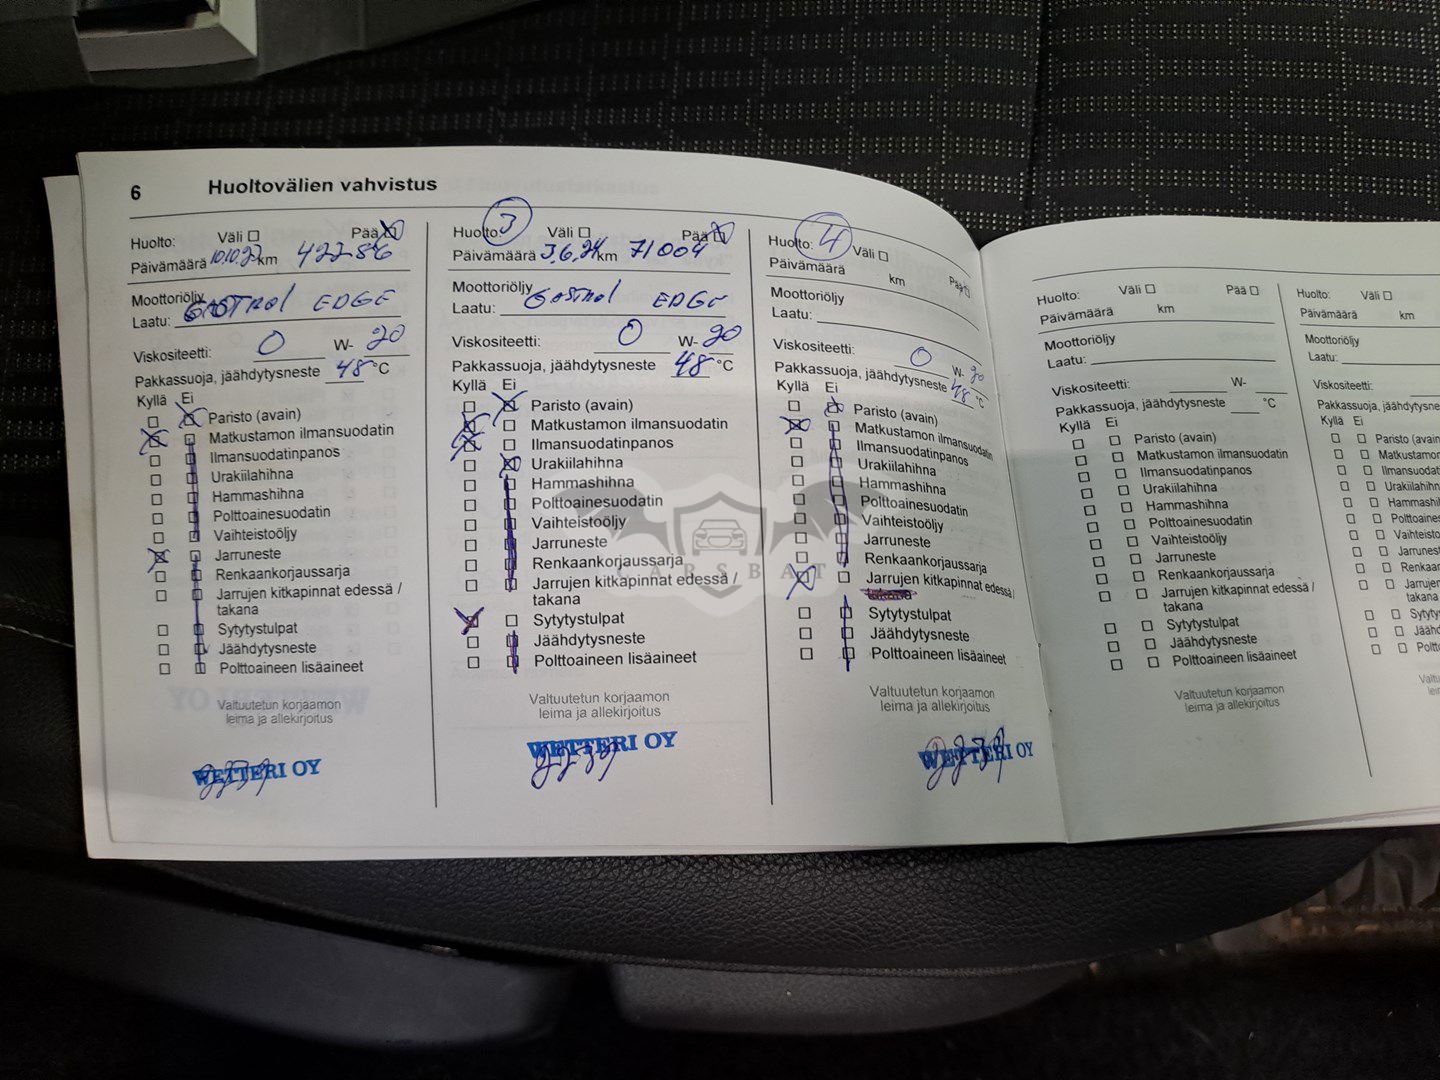 6 Huoltovälien vahvistus
Huolto: Väli Pää
Päivämäärä 10.10.22 km 42286
Moottoriöljy
Laatu: CASTROL EDGE
Viskositeetti: 0 W- 20
Pakkassuoja, jäähdytysneste 48 °C
Kyllä Ei
Paristo (avain)
Matkustamon ilmansuodatin
Ilmansuodatinpanos
Urakiilahihna
Hammashihna
Polttoainesuodatin
Vaihteistoöljy
Jarruneste
Renkaankorjaussarja
Jarrujen kitkapinnat edessä /
takana
Sytytystulpat
Jäähdytysneste
Polttoaineen lisäaineet
Valtuutetun korjaamon
leima ja allekirjoitus
WETTERI OY
Huolto: 3 Väli Pää
Päivämäärä 3.6.24 km 71004
Moottoriöljy
Laatu: Castrol EDGE
Viskositeetti: 0 W- 20
Pakkassuoja, jäähdytysneste 48 °C
Kyllä Ei
Paristo (avain)
Matkustamon ilmansuodatin
Ilmansuodatinpanos
Urakiilahihna
Hammashihna
Polttoainesuodatin
Vaihteistoöljy
Jarruneste
Renkaankorjaussarja
Jarrujen kitkapinnat edessä /
takana
Sytytystulpat
Jäähdytysneste
Polttoaineen lisäaineet
Valtuutetun korjaamon
leima ja allekirjoitus
WETTERI OY
Huolto: 4 Väli Pää
Päivämäärä km
Moottoriöljy
Laatu:
Viskositeetti: 0 W- 20
Pakkassuoja, jäähdytysneste 48 °C
Kyllä Ei
Paristo (avain)
Matkustamon ilmansuodatin
Ilmansuodatinpanos
Urakiilahihna
Hammashihna
Polttoainesuodatin
Vaihteistoöljy
Jarruneste
Renkaankorjaussarja
Jarrujen kitkapinnat edessä /
Sytytystulpat
Jäähdytysneste
Polttoaineen lisäaineet
Valtuutetun korjaamon
leima ja allekirjoitus
WETTERI OY
Huolto: Väli Pää
Päivämäärä km
Moottoriöljy
Laatu:
Viskositeetti: W-
Pakkassuoja, jäähdytysneste °C
Kyllä Ei
Paristo (avain)
Matkustamon ilmansuodatin
Ilmansuodatinpanos
Urakiilahihna
Hammashihna
Polttoainesuodatin
Vaihteistoöljy
Jarruneste
Renkaankorjaussarja
Jarrujen kitkapinnat edessä /
takana
Sytytystulpat
Jäähdytysneste
Polttoaineen lisäaineet
Valtuutetun korjaamon
leima ja allekirjoitus
Huolto: Väli
Päivämäärä km
Moottoriöljy
Laatu:
Viskositeetti:
Pakkassuoja, jäähdytysne
Kyllä Ei
Paristo (avain
Matkustamon
Ilmansuodatin
Urakiilahihn
Hammashih
Polttoaines
Vaihteisto
Jarrunest
Renkaan
Jarrujen
takana
Sytyty
Jäähd
Poltto
CARSBAT